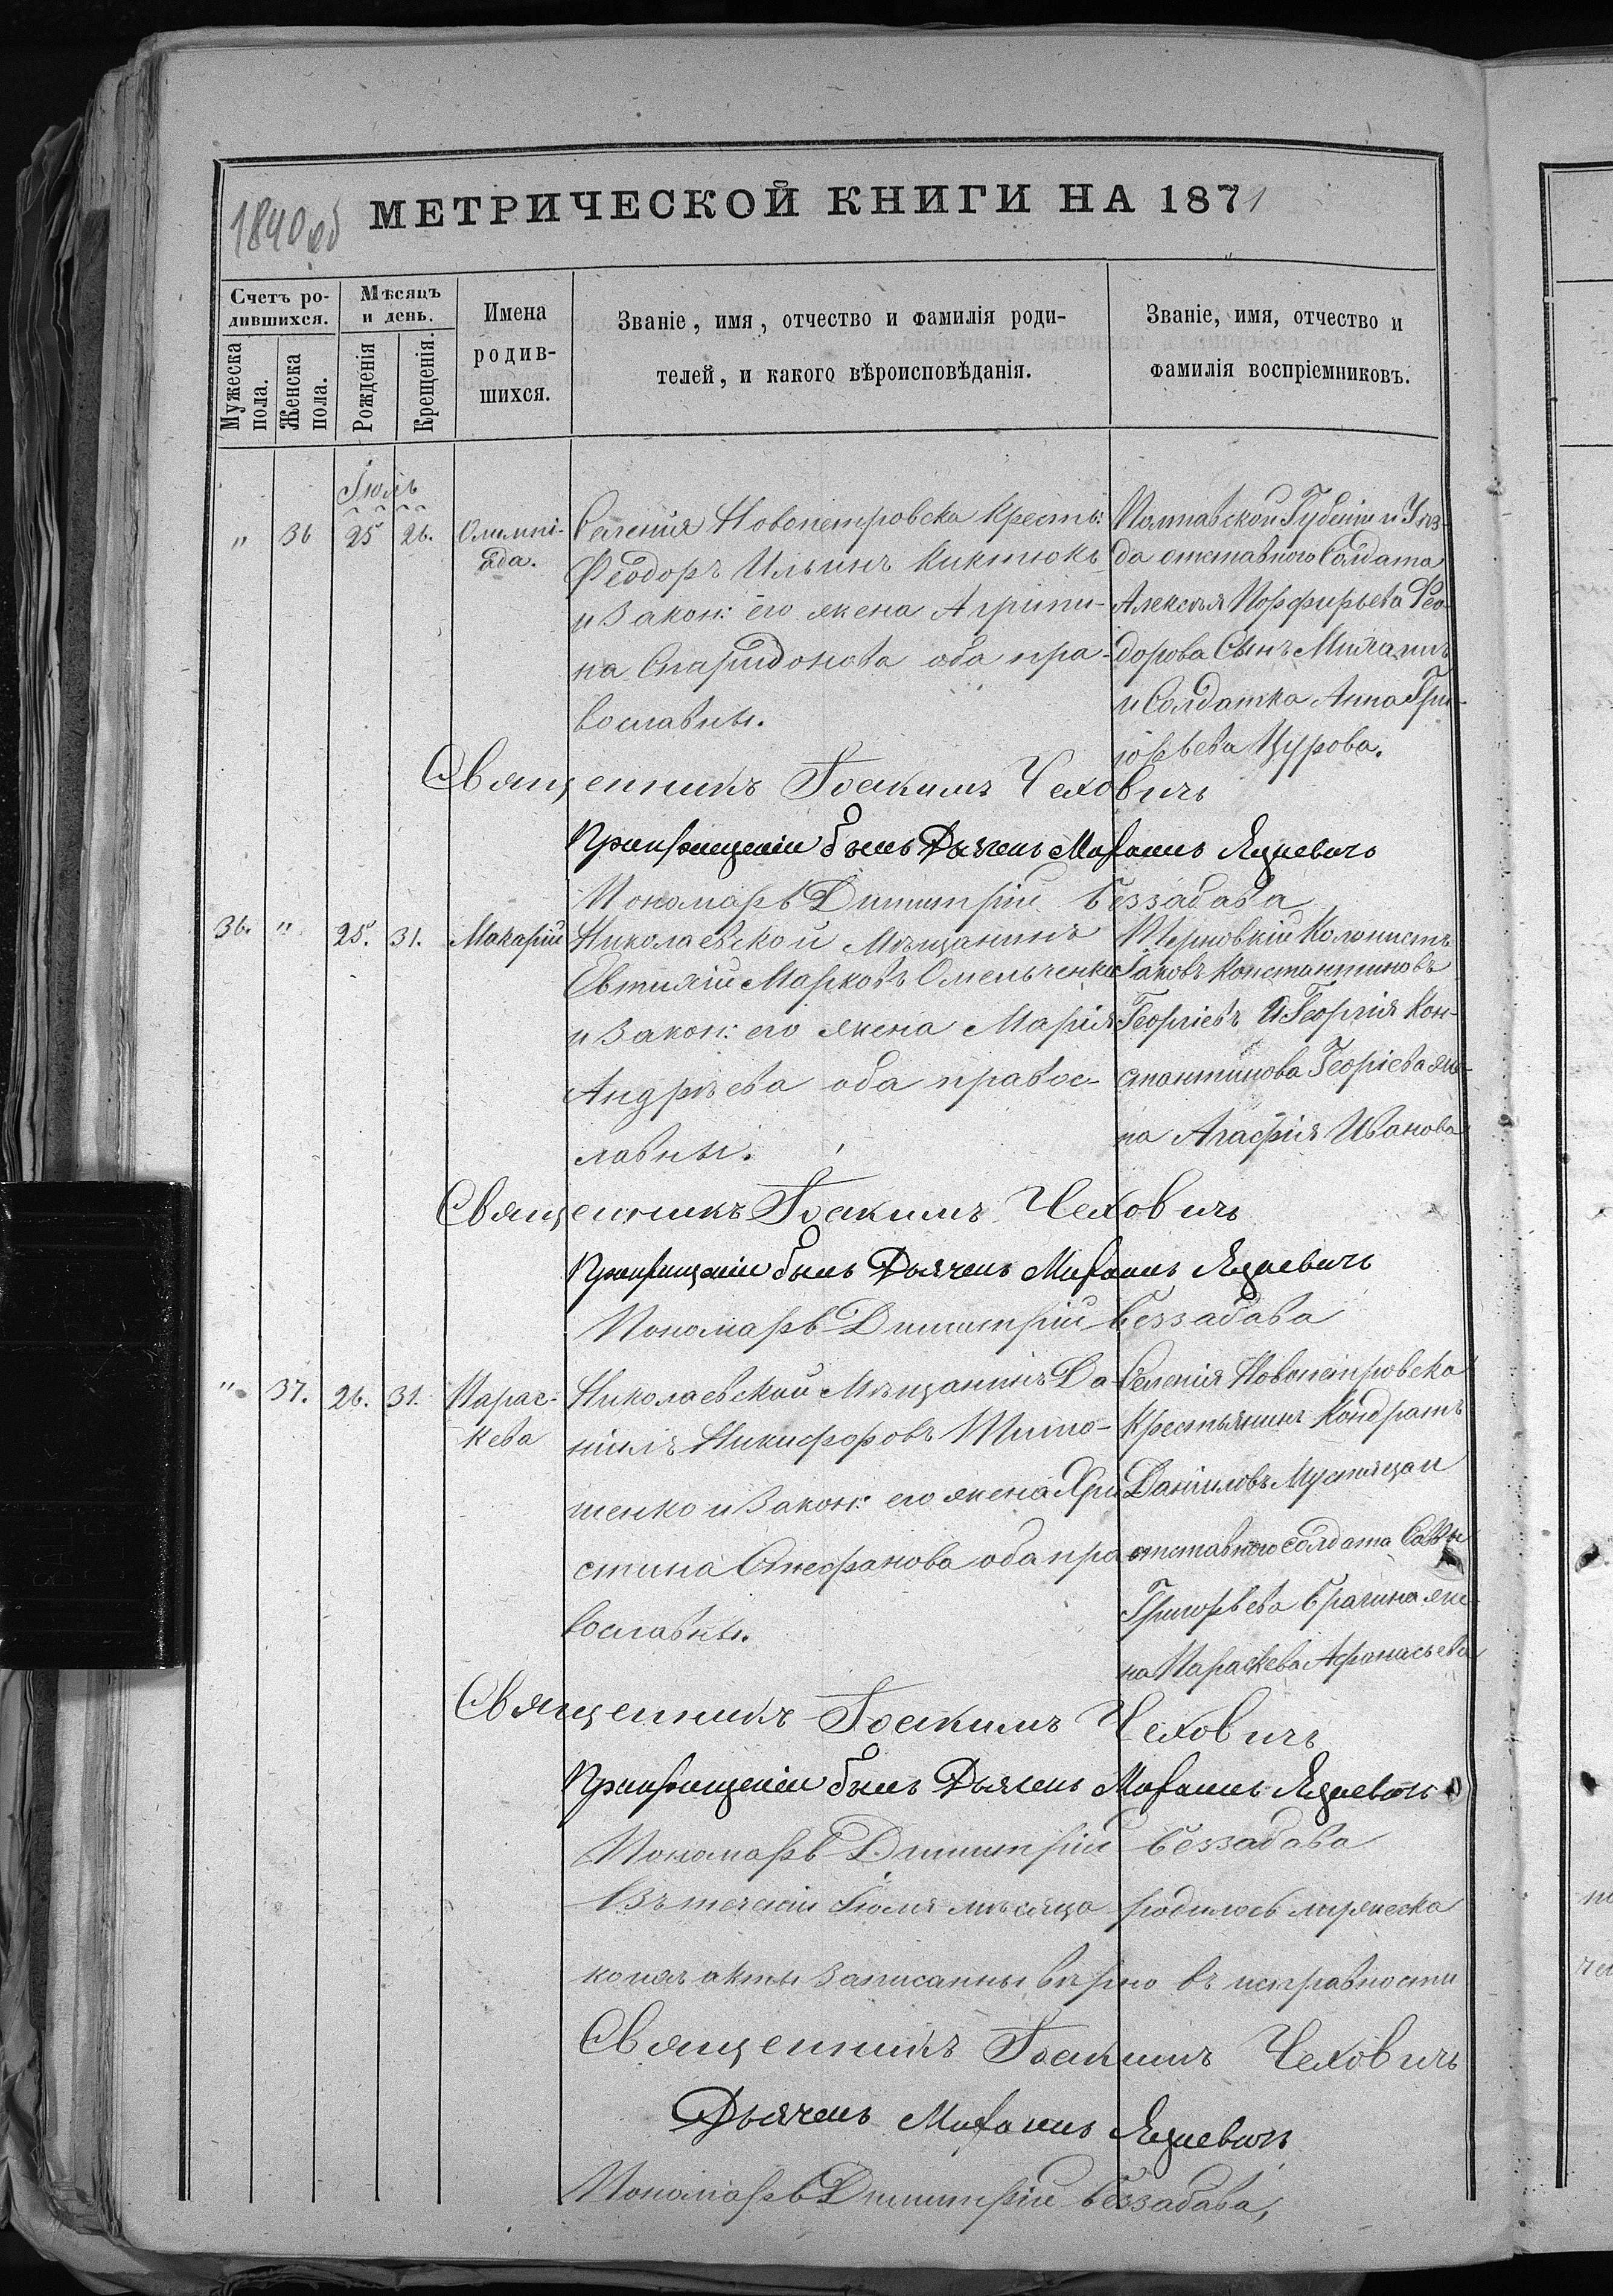 1840 об
МЕТРИЧЕСКОЙ КНИГИ НА 1871
Счетъ ро-
дившихся.
Мужеска
пола.
Женска
пола.
Мѣсяцъ
и день.
Рожденія
Крещенія.
Имена
родив-
шихся.
Званіе, имя, отчество и фамилія роди-
телей, и какого вѣроисповѣданія.
Званіе, имя, отчество и
фамилія воспріемниковъ.
Іюль
" 36 25 26.
Олимпі-
ада.
Селенія Новопетровска Крестьⷩ:
Феодоръ Ильинъ Киктюкъ
и Закон: его жена Агрипи-
на Спиридонова оба пра-
вославны.
Полтавской Губеніи и Уѣз-
да отставного Солдата
Алексѣя Порфирьева Фео-
дорова Сынъ Михаилъ
и Солдатка Анна Гри-
горьева Цурова.
Священникъ Іоакимъ Чеховичъ
При крещеніи былъ Дьячекъ
Пономарь Димитрій Беззабава
36. " 25. 31.
Макарій
Николаевской Мѣщанинъ
Евтихій Марковъ Омельченко
и Закон: его жена Марія
Андрѣева оба правос-
лавны.
Терновкій Колонистъ
Іаковъ Константиновъ
Георгіевъ и Георгія Кон-
стантинова Георгіева же-
на Агафія Иванова
Священникъ Іоакимъ Чеховичъ
При крещеніи былъ Дьячекъ
Пономарь Димитрій Беззабава
" 37. 26. 31.
Парас-
кева
Николаевскій Мѣщанинъ Да-
ніилъ Никифоровъ Тимо-
шенко и Закон: его жена Хри
стина Стефанова оба пра
вославны.
Селенія Новопетровска
Крестьянинъ Кондратъ
Даніиловъ Мустяца и
отставного солдата Саввы
Григорьева Брагина же-
на Параскева Афанасьева
Священникъ Іоакимъ Чеховичъ
При крещеніи былъ Дьячекъ
Пономарь Димитрій Беззабава
Въ теченіи Іюля мѣсяца родилось
акты записанны вѣрно въ исправности
Священникъ Іоакимъ Чеховичъ
Дьячекъ
Пономарь Димитрій Беззабава,